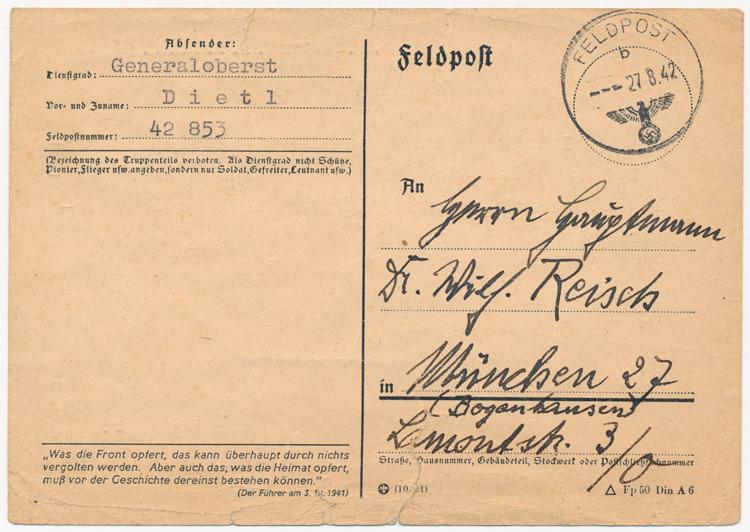 Absender:
Dienstgrad: Generaloberst
Vor- und Zuname: Dietl
Feldpostnummer: 42 853
(Bezeichnung des Truppenteils verboten. Als Dienstgrad nicht Schütze,
Pionier, Flieger usw. angeben, sondern nur Soldat, Gefreiter, Leutnant usw.)
„Was die Front opfert, das kann überhaupt durch nichts
vergolten werden. Aber auch das, was die Heimat opfert,
muß vor der Geschichte dereinst bestehen können.“
(Der Führer am 3. 10. 1941)
Feldpost
FELDPOST
b
--- 27.8.42
An
Herrn Hauptmann
Dr. Wilh. Reisch
in München 27
(Bogenhausen)
Lamontstr. 3/0
Straße, Hausnummer, Gebäudeteil, Stockwerk oder Postschließfachnummer
(10. 41)
Fp 50 Din A 6